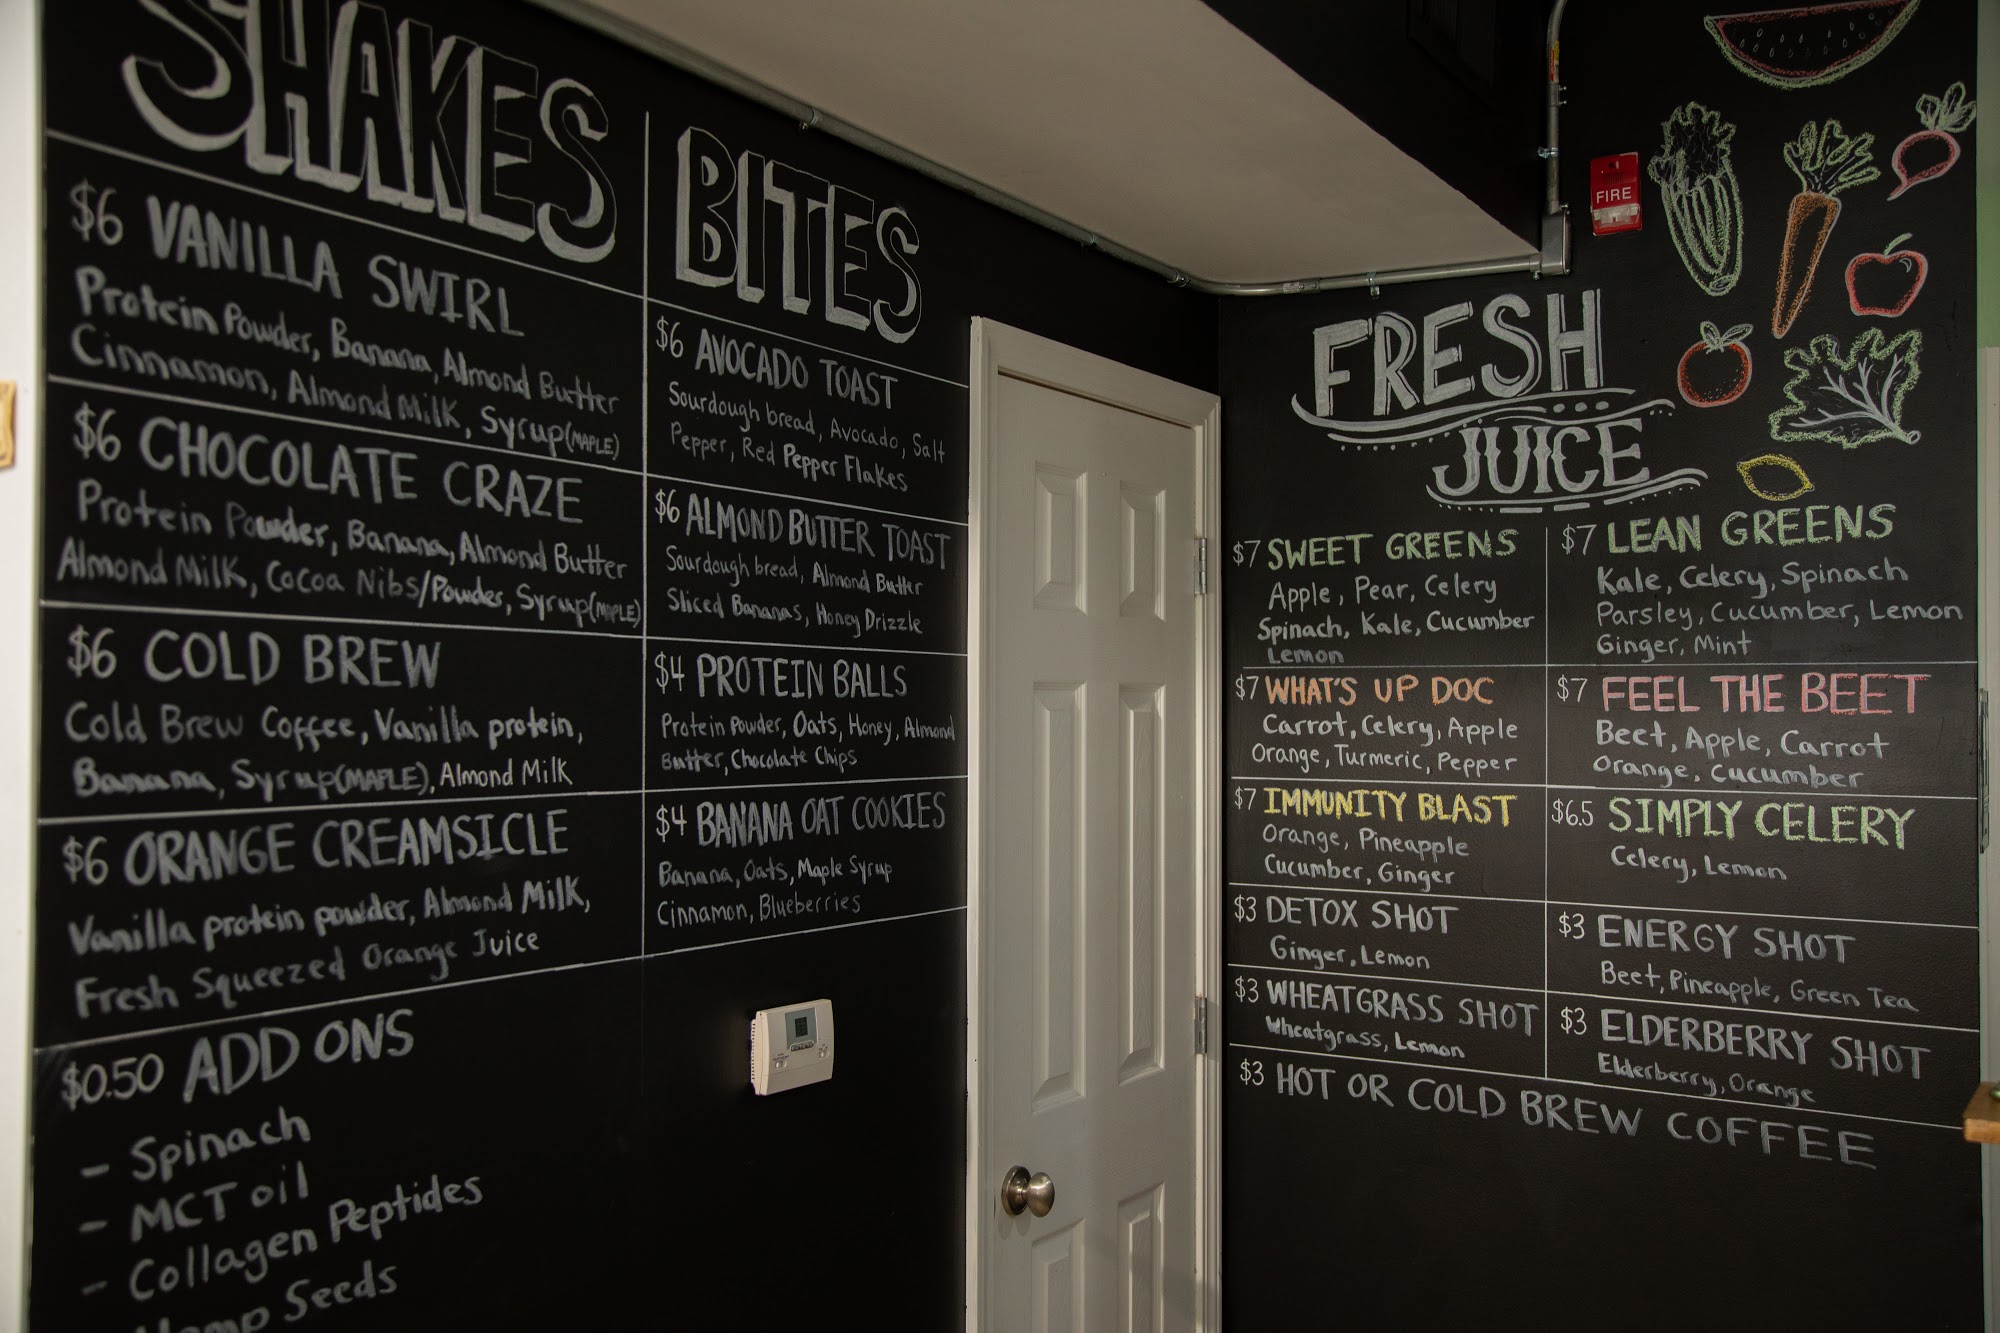 SHAKES
$6 VANILLA SWIRL
Protein Powder, Banana, Almond Butter
Cinnamon, Almond Milk, Syrup(MAPLE)
$6 CHOCOLATE CRAZE
Protein Powder, Banana, Almond Butter
Almond Milk, Cocoa Nibs/Powder, Syrup(MAPLE)
$6 COLD BREW
Cold Brew Coffee, Vanilla protein,
Banana, Syrup(MAPLE), Almond Milk
$6 ORANGE CREAMSICLE
Vanilla protein powder, Almond Milk,
Fresh Squeezed Orange Juice
$0.50 ADD ONS
- Spinach
- MCT oil
- Collagen Peptides
Hemp Seeds
BITES
$6 AVOCADO TOAST
Sourdough bread, Avocado, Salt
Pepper, Red Pepper Flakes
$6 ALMOND BUTTER TOAST
Sourdough bread, Almond Butter
Sliced Bananas, Honey Drizzle
$4 PROTEIN BALLS
Protein Powder, Oats, Honey, Almond
Butter, Chocolate Chips
$4 BANANA OAT COOKIES
Banana, Oats, Maple Syrup
Cinnamon, Blueberries
FIRE
FRESH
JUICE
$7 SWEET GREENS
Apple, Pear, Celery
Spinach, Kale, Cucumber
Lemon
$7 WHAT'S UP DOC
Carrot, Celery, Apple
Orange, Turmeric, Pepper
$7 IMMUNITY BLAST
Orange, Pineapple
Cucumber, Ginger
$3 DETOX SHOT
Ginger, Lemon
$3 WHEATGRASS SHOT
Wheatgrass, Lemon
$7 LEAN GREENS
Kale, Celery, Spinach
Parsley, Cucumber, Lemon
Ginger, Mint
$7 FEEL THE BEET
Beet, Apple, Carrot
Orange, Cucumber
$6.5 SIMPLY CELERY
Celery, Lemon
$3 ENERGY SHOT
Beet, Pineapple, Green Tea
$3 ELDERBERRY SHOT
Elderberry, Orange
$3 HOT OR COLD BREW COFFEE